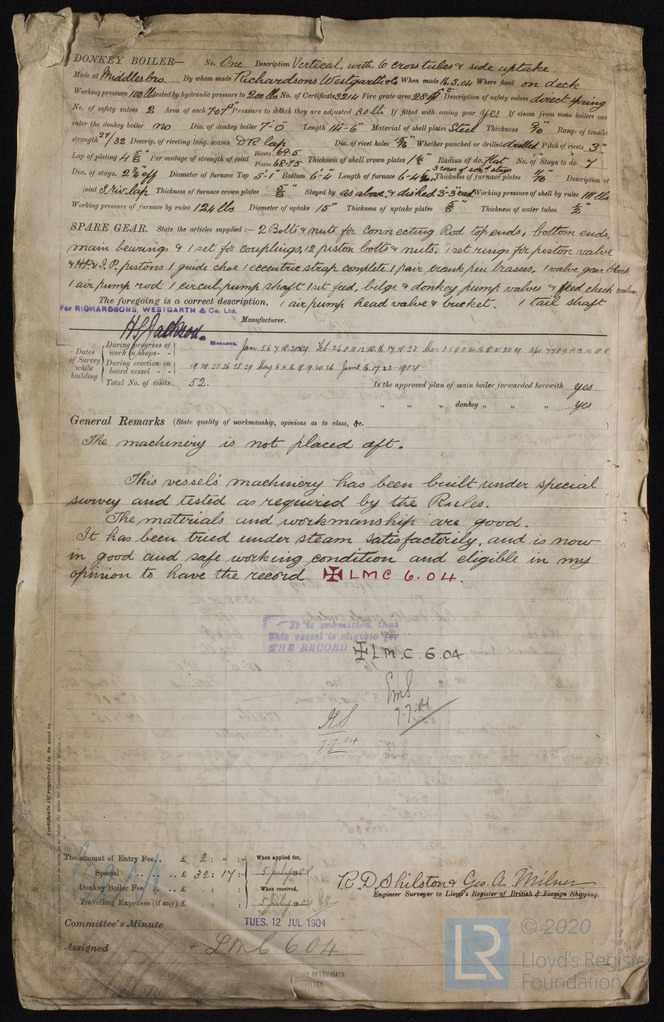 DONKEY BOILER— No. One Description Vertical, with 6 cross tubes & side uptake
Made at Middlesbro. By whom made Richardsons Westgarth & Co When made 16.5.04 Where fixed on deck
Working pressure 100 lbs tested by hydraulic pressure to 200 lbs No. of Certificate 3214 Fire grate area 28 Description of safety valves direct spring
No. of safety valves 2 Area of each 7.07 Pressure to which they are adjusted If fitted with easing gear yes If steam from main boilers can
enter the donkey boiler no Dia. of donkey boiler 7'-0 Length 14'-6" Material of shell plates Steel Thickness Range of tensile
strength 27/32 Descrip. of riveting long. seams DR lap Dia. of rivet holes Whether punched or drilled drilled Pitch of rivets 3"
Lap of plating Per centage of strength of joint Rivets 69.5 Plate 68.75 Thickness of shell crown plates Radius of do. flat No. of Stays to do. 7
Dia. of stays. Diameter of furnace Top 5'-1" Bottom 6'-4 Length of furnace Thickness of furnace plates Description of
joint S riv. lap Thickness of furnace crown plates Stayed by as above & dished Working pressure of shell by rules 111 lbs
Working pressure of furnace by rules 124 lbs Diameter of uptake 15" Thickness of uptake plates Thickness of water tubes
SPARE GEAR. State the articles supplied:— 2 Bolts & nuts for Connecting Rod top ends, bottom ends,
main bearings & 1 set for couplings, 12 piston bolts & nuts, 1 set rings for piston valve
& I.P. pistons 1 guide shoe 1 eccentric strap complete. 1 pair crank pin brasses, 1 valve gear block
1 air pump rod 1 circul. pump shaft 1 set feed, bilge & donkey pump valves & feed check valves
The foregoing is a correct description, 1 air pump head valve & bucket. 1 tail shaft
For RICHARDSONS, WESTGARTH & Co. Ltd.
H S Jackson. Manufacturer.
MANAGER.
Dates of Survey while building
During progress of work in shops--
During erection on board vessel ---
Total No. of visits. 52.
Is the approved plan of main boiler forwarded herewith yes
" " donkey " " " yes
General Remarks (State quality of workmanship, opinions as to class, &c.
The machinery is not placed aft.
This vessel's machinery has been built under special
survey and tested as required by the Rules.
The materials and workmanship are good.
It has been tried under steam satisfactorily, and is now
in good and safe working condition and eligible in my
opinion to have the record ✠ LMC 6.04.
It is submitted that
this vessel is eligible for
THE RECORD ✠ L.M.C. 6.04.
7.7.04
7.7.04
The amount of Entry Fee.. £ 2 : - : - When applied for,
Special £ 32 : 17 : 5 July 1904
Donkey Boiler Fee £ : : When received,
Travelling Expenses (if any) £ : : 8 July 1904
R. D. Shilston & Geo. A. Milner
Engineer Surveyor to Lloyd's Register of British & Foreign Shipping.
Committee's Minute TUES. 12 JUL 1904
Assigned + LMC 6.04
LR
© 2020
Lloyd's Register
Foundation